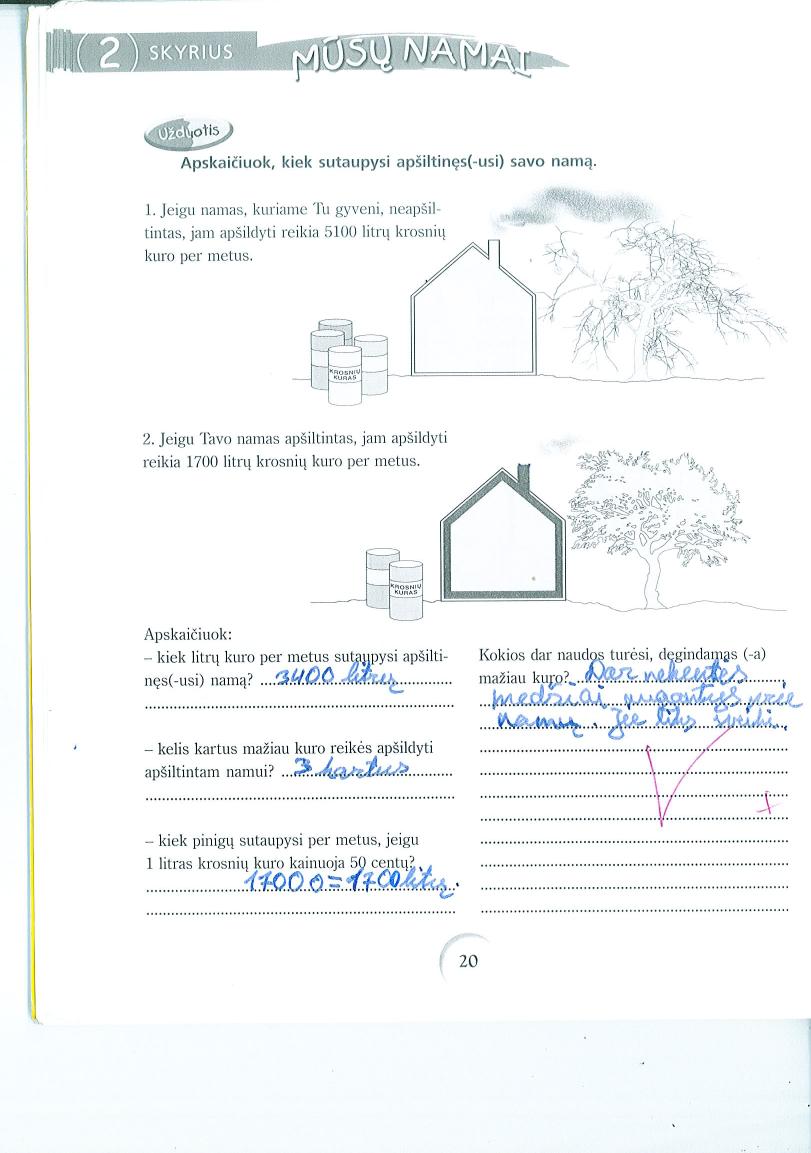 2 SKYRIUS
MŪSŲ NAMAI
Užduotis
Apskaičiuok, kiek sutaupysi apšiltinęs(-usi) savo namą.
1. Jeigu namas, kuriame Tu gyveni, neapšil-
tintas, jam apšildyti reikia 5100 litrų krosnių
kuro per metus.
KROSNIŲ
KURAS
2. Jeigu Tavo namas apšiltintas, jam apšildyti
reikia 1700 litrų krosnių kuro per metus.
KROSNIŲ
KURAS
Apskaičiuok:
– kiek litrų kuro per metus sutaupysi apšilti-
nęs(-usi) namą? 3400 litrų
– kelis kartus mažiau kuro reikės apšildyti
apšiltintam namui? 3 kartus
– kiek pinigų sutaupysi per metus, jeigu
1 litras krosnių kuro kainuoja 50 centų?
17000=1700 litų.
Kokios dar naudos turėsi, degindamas (-a)
mažiau kuro? Dar nekentės
medžiai augantys prie
namų. Jie liks
20